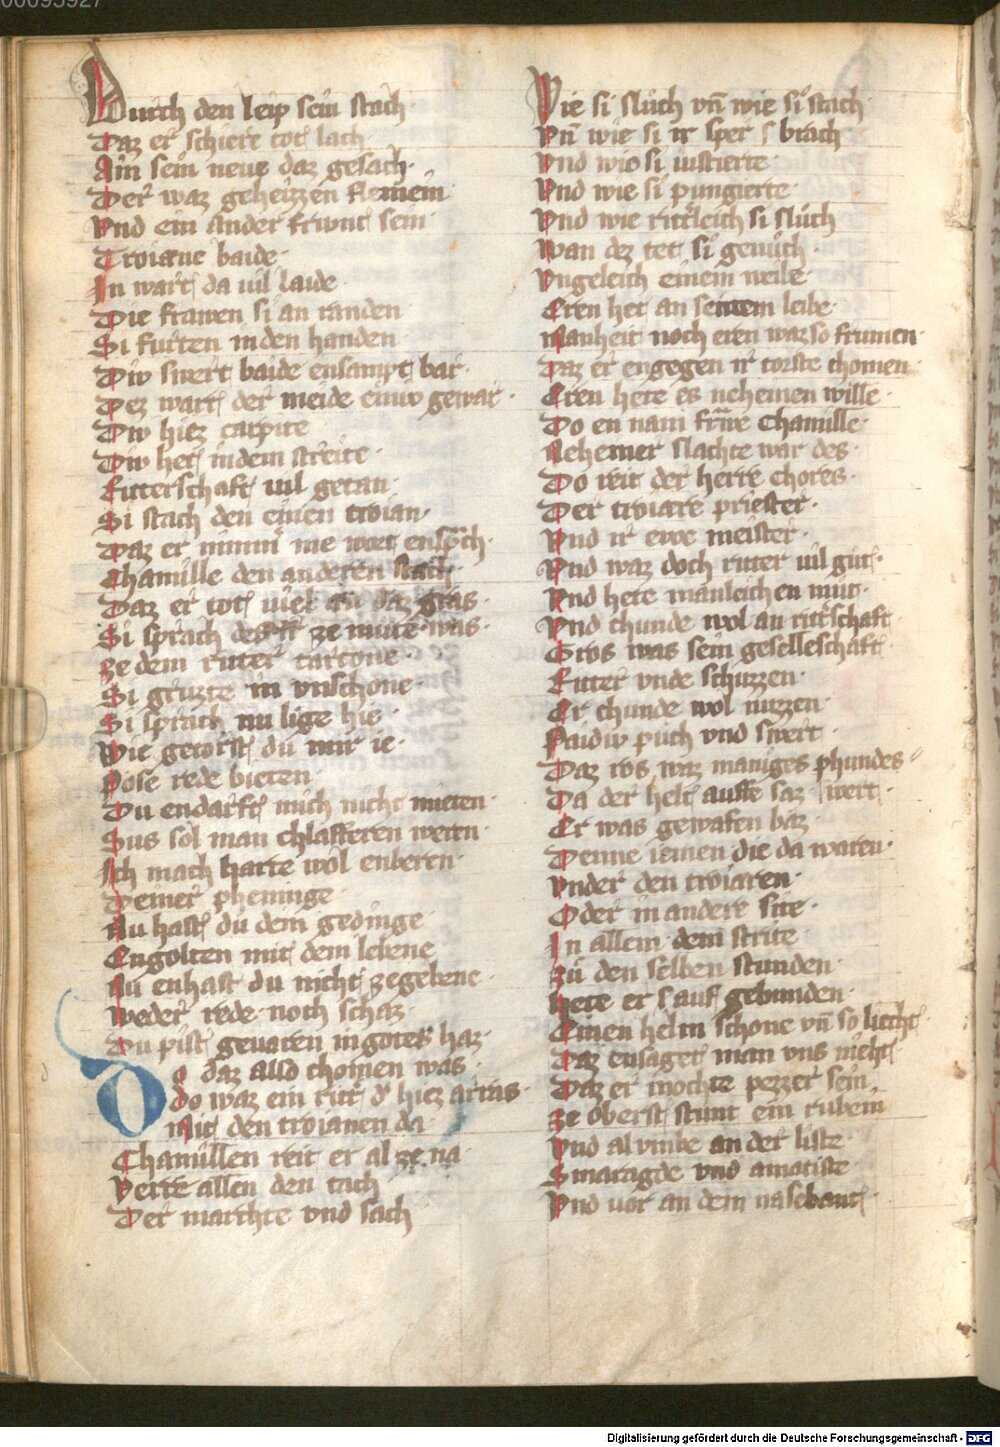 00095927
Durch den leip sein stach
Daz er schiere tot lach
Ain sein neue daz gesach
Der waz geheizzen Remein
Vnd ein ander frivnt sein
Troiane baide
In wart da uil laide
Die frawen si an randen
Si furten in den handen
Div swert baide ensampt bar
Dez wart der meide einiv gewar
Div hiez carpite
Div het in dem streite
Ritterschaft uil getan
Si stach den einen troian
Daz er nimm me wort ensprch
Chamille den anderen stach
Daz er tot uiel an daz gras
Si sprach des ir ze mute was
Ze dem ritter tarcone
Si gruzte in vnschone
Si sprach nu lige hie
Wie getorst du mir ie
Pose rede bieten
Du endarft mich nicht mieten
Sus sol man chlafferen wern
Ich mach harte wol enberen
Deiner pheninge
Nu hast du dem gedinge
Engolten mit dem lebene
Nu enhast du nicht zegebene
Weder rede noch schaz
Du pist geuaren in gotes haz
Do daz allo chomen was
Do waz ein ritt d hiez arras
Mit den troianen da
Chamillen reit er al ze na
Verre allen den tach
Der marchte vnd sach
Wie si sluch vn wie si stach
Vn wie si ir sper s brach
Vnd wie si iustierte
Vnd wie si pungierte
Vnd wie rittleich si sluch
Wan dez tet si genuch
Vngeleich einem weibe
Eren het an seinem leibe
Manheit noch eren waz so frumen
Daz er engegen ir torste chomen
Eren hete es neheinen wille
Do en nam frwe Chamille
Neheiner slachte war des
Do reit der herre chores
Der troiare priester
Vnd ir ewe meister
Vnd waz doch ritter uil gut
Vnd hete manleichen mut
Vnd chunde wol an rittschaft
Gros was sein geselleschaft
Ritter vnde schuzzen
Er chunde wol nuzzen
Paidiv puch vnd swert
Daz ros waz maniges phundes
Da der helt auffe saz wert
Er was gewafen baz
Denne iemen die da waren
Vnder den troiaren
Oder in andere site
In allem dem strite
Zu den selben stunden
Hete er s auf gebunden
Einen helm schone vn so liecht
Daz ensaget man vns nicht
Daz er mochte pezzer sein
Ze oberst stunt ein rubein
Vnd al vmbe an der liste
Smaragde vnd amatiste
Vnd uor an dem nasebant
Digitalisierung gefördert durch die Deutsche Forschungsgemeinschaft - DFG